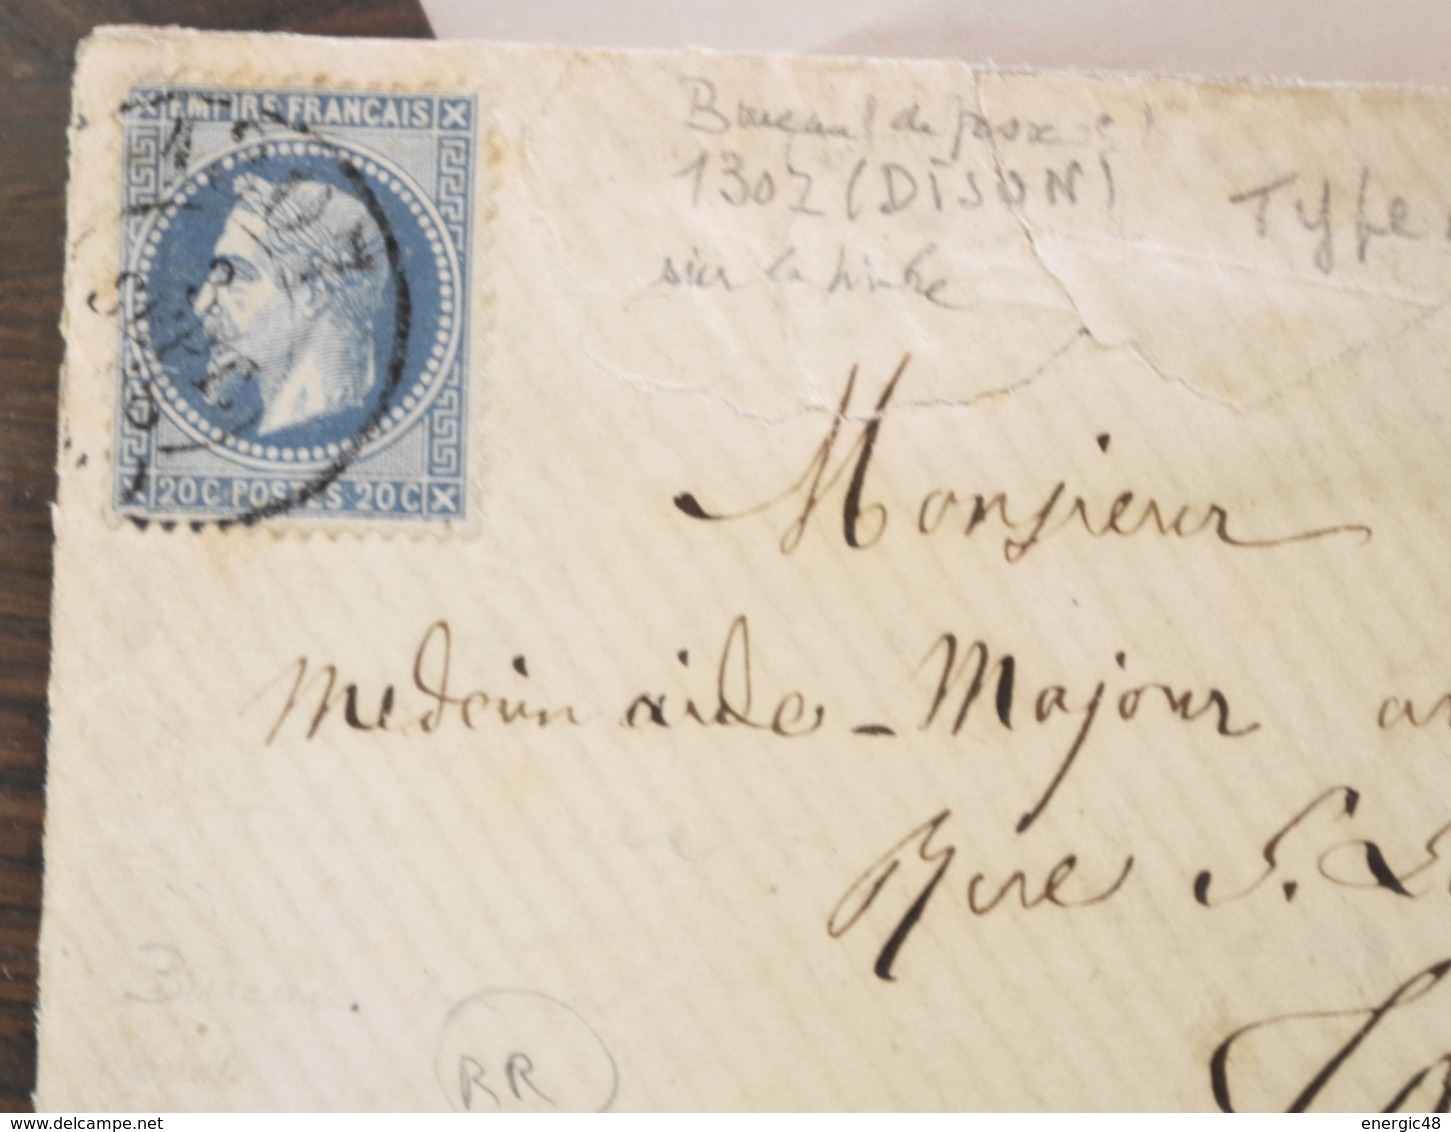 EMPIRE FRANÇAIS
20C POSTES 20C
Bureau de passe
1307 (DIJON)
sur la timbre
Type
Monsieur
Medecin aide-Major
Rue S.
RR
delcampe.net
energic48